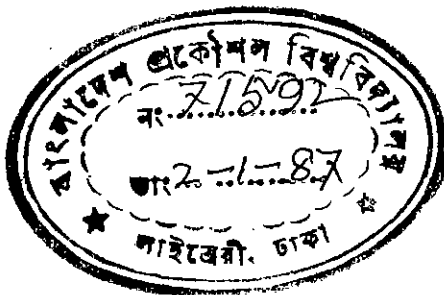 বাংলাদেশ প্রকৌশল বিশ্ববিদ্যালয়
নং 71592
তাং 2-1-87
লাইব্রেরী, ঢাকা